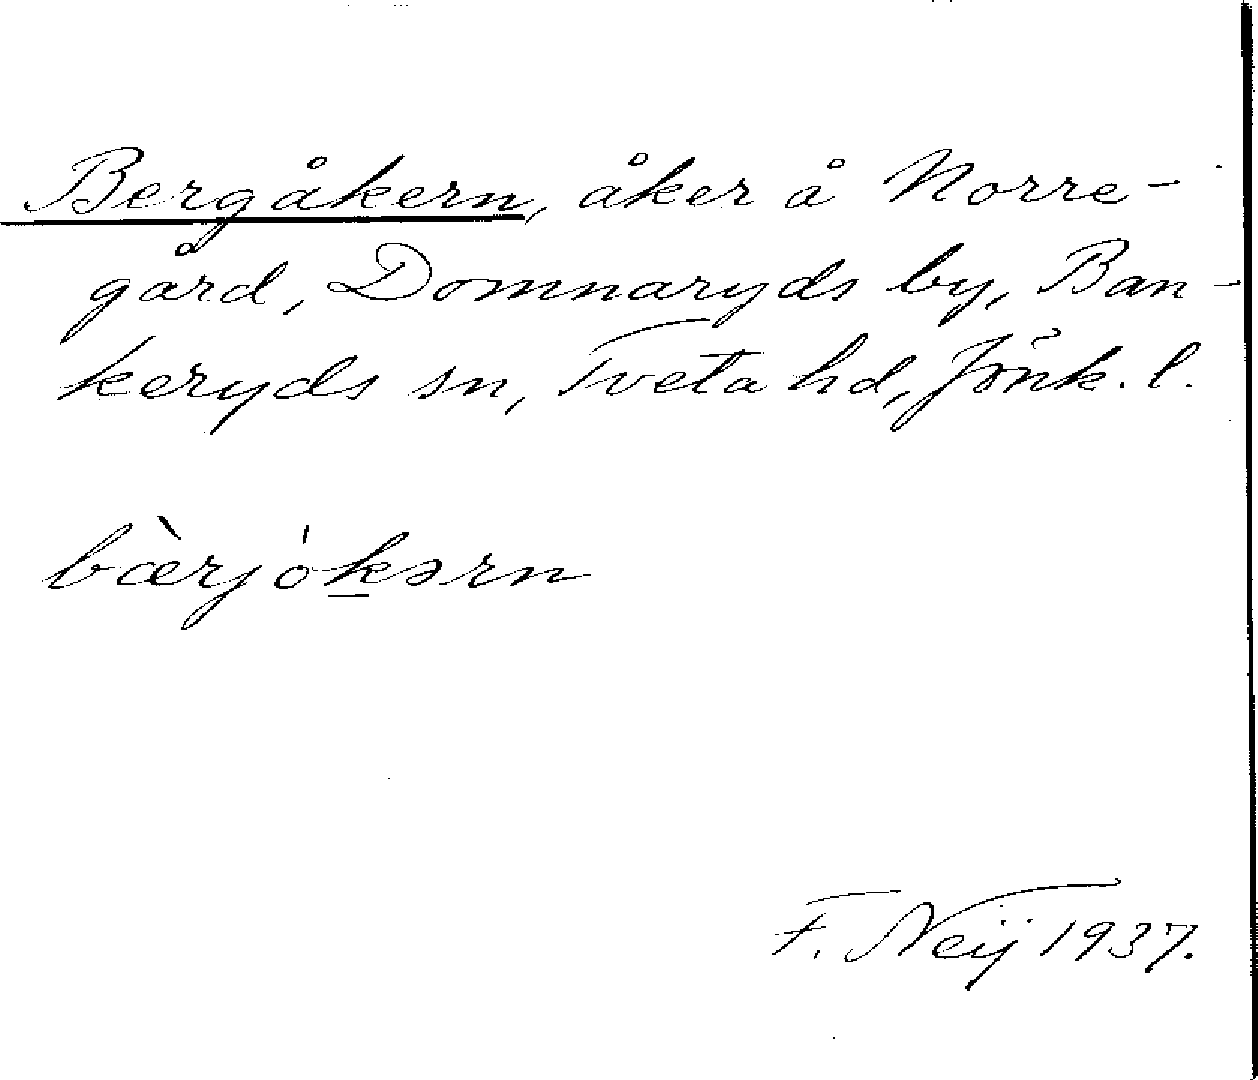 Bergåkern, åker å Norre-
gård, Domnaryds by, Ban-
keryds sn, Tveta hd, Jönk. l.
bæ̀rjók̲ərn
F. Neij 1937.